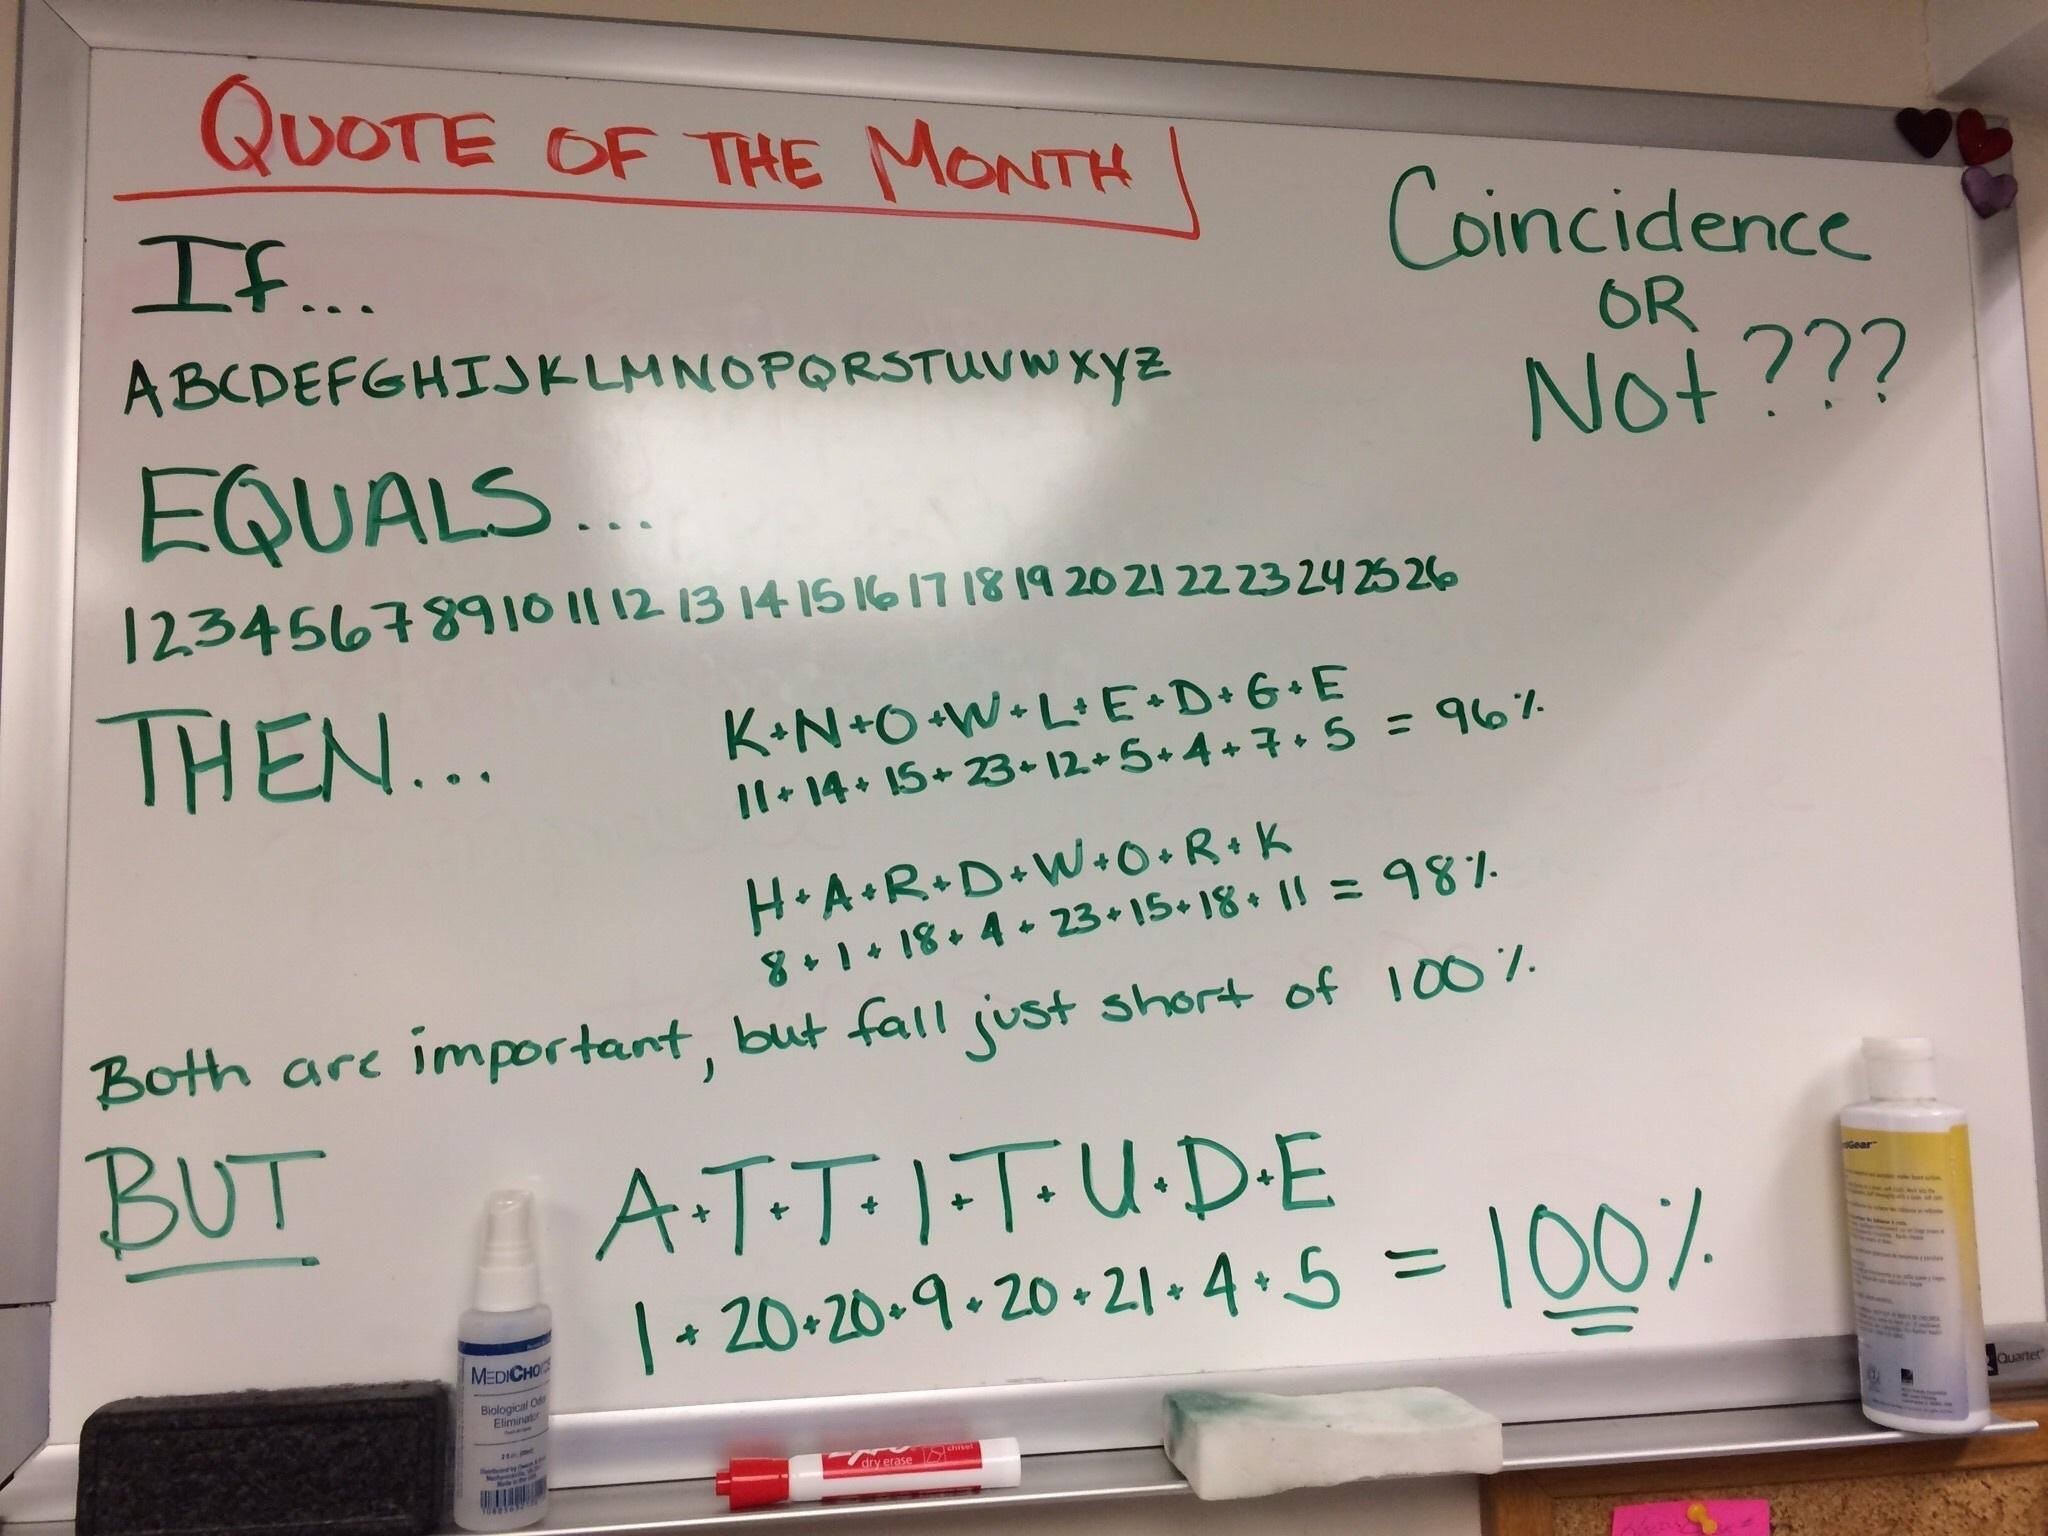 QUOTE OF THE MONTH
Coincidence
OR
Not ???
If...
ABCDEFGHIJKLMNOPQRSTUVWXYZ
EQUALS...
1 2 3 4 5 6 7 8 9 10 11 12 13 14 15 16 17 18 19 20 21 22 23 24 25 26
THEN...
K+N+O+W+L+E+D+G+E
11+14+15+23+12+5+4+7+5 = 96%
H+A+R+D+W+O+R+K
8+1+18+4+23+15+18+11 = 98%
Both are important, but fall just short of 100%
BUT
A+T+T+I+T+U+D+E
1+20+20+9+20+21+4+5 = 100%
MEDICHO
Biological Odor
Eliminator
dry erase
chisel
Quartet